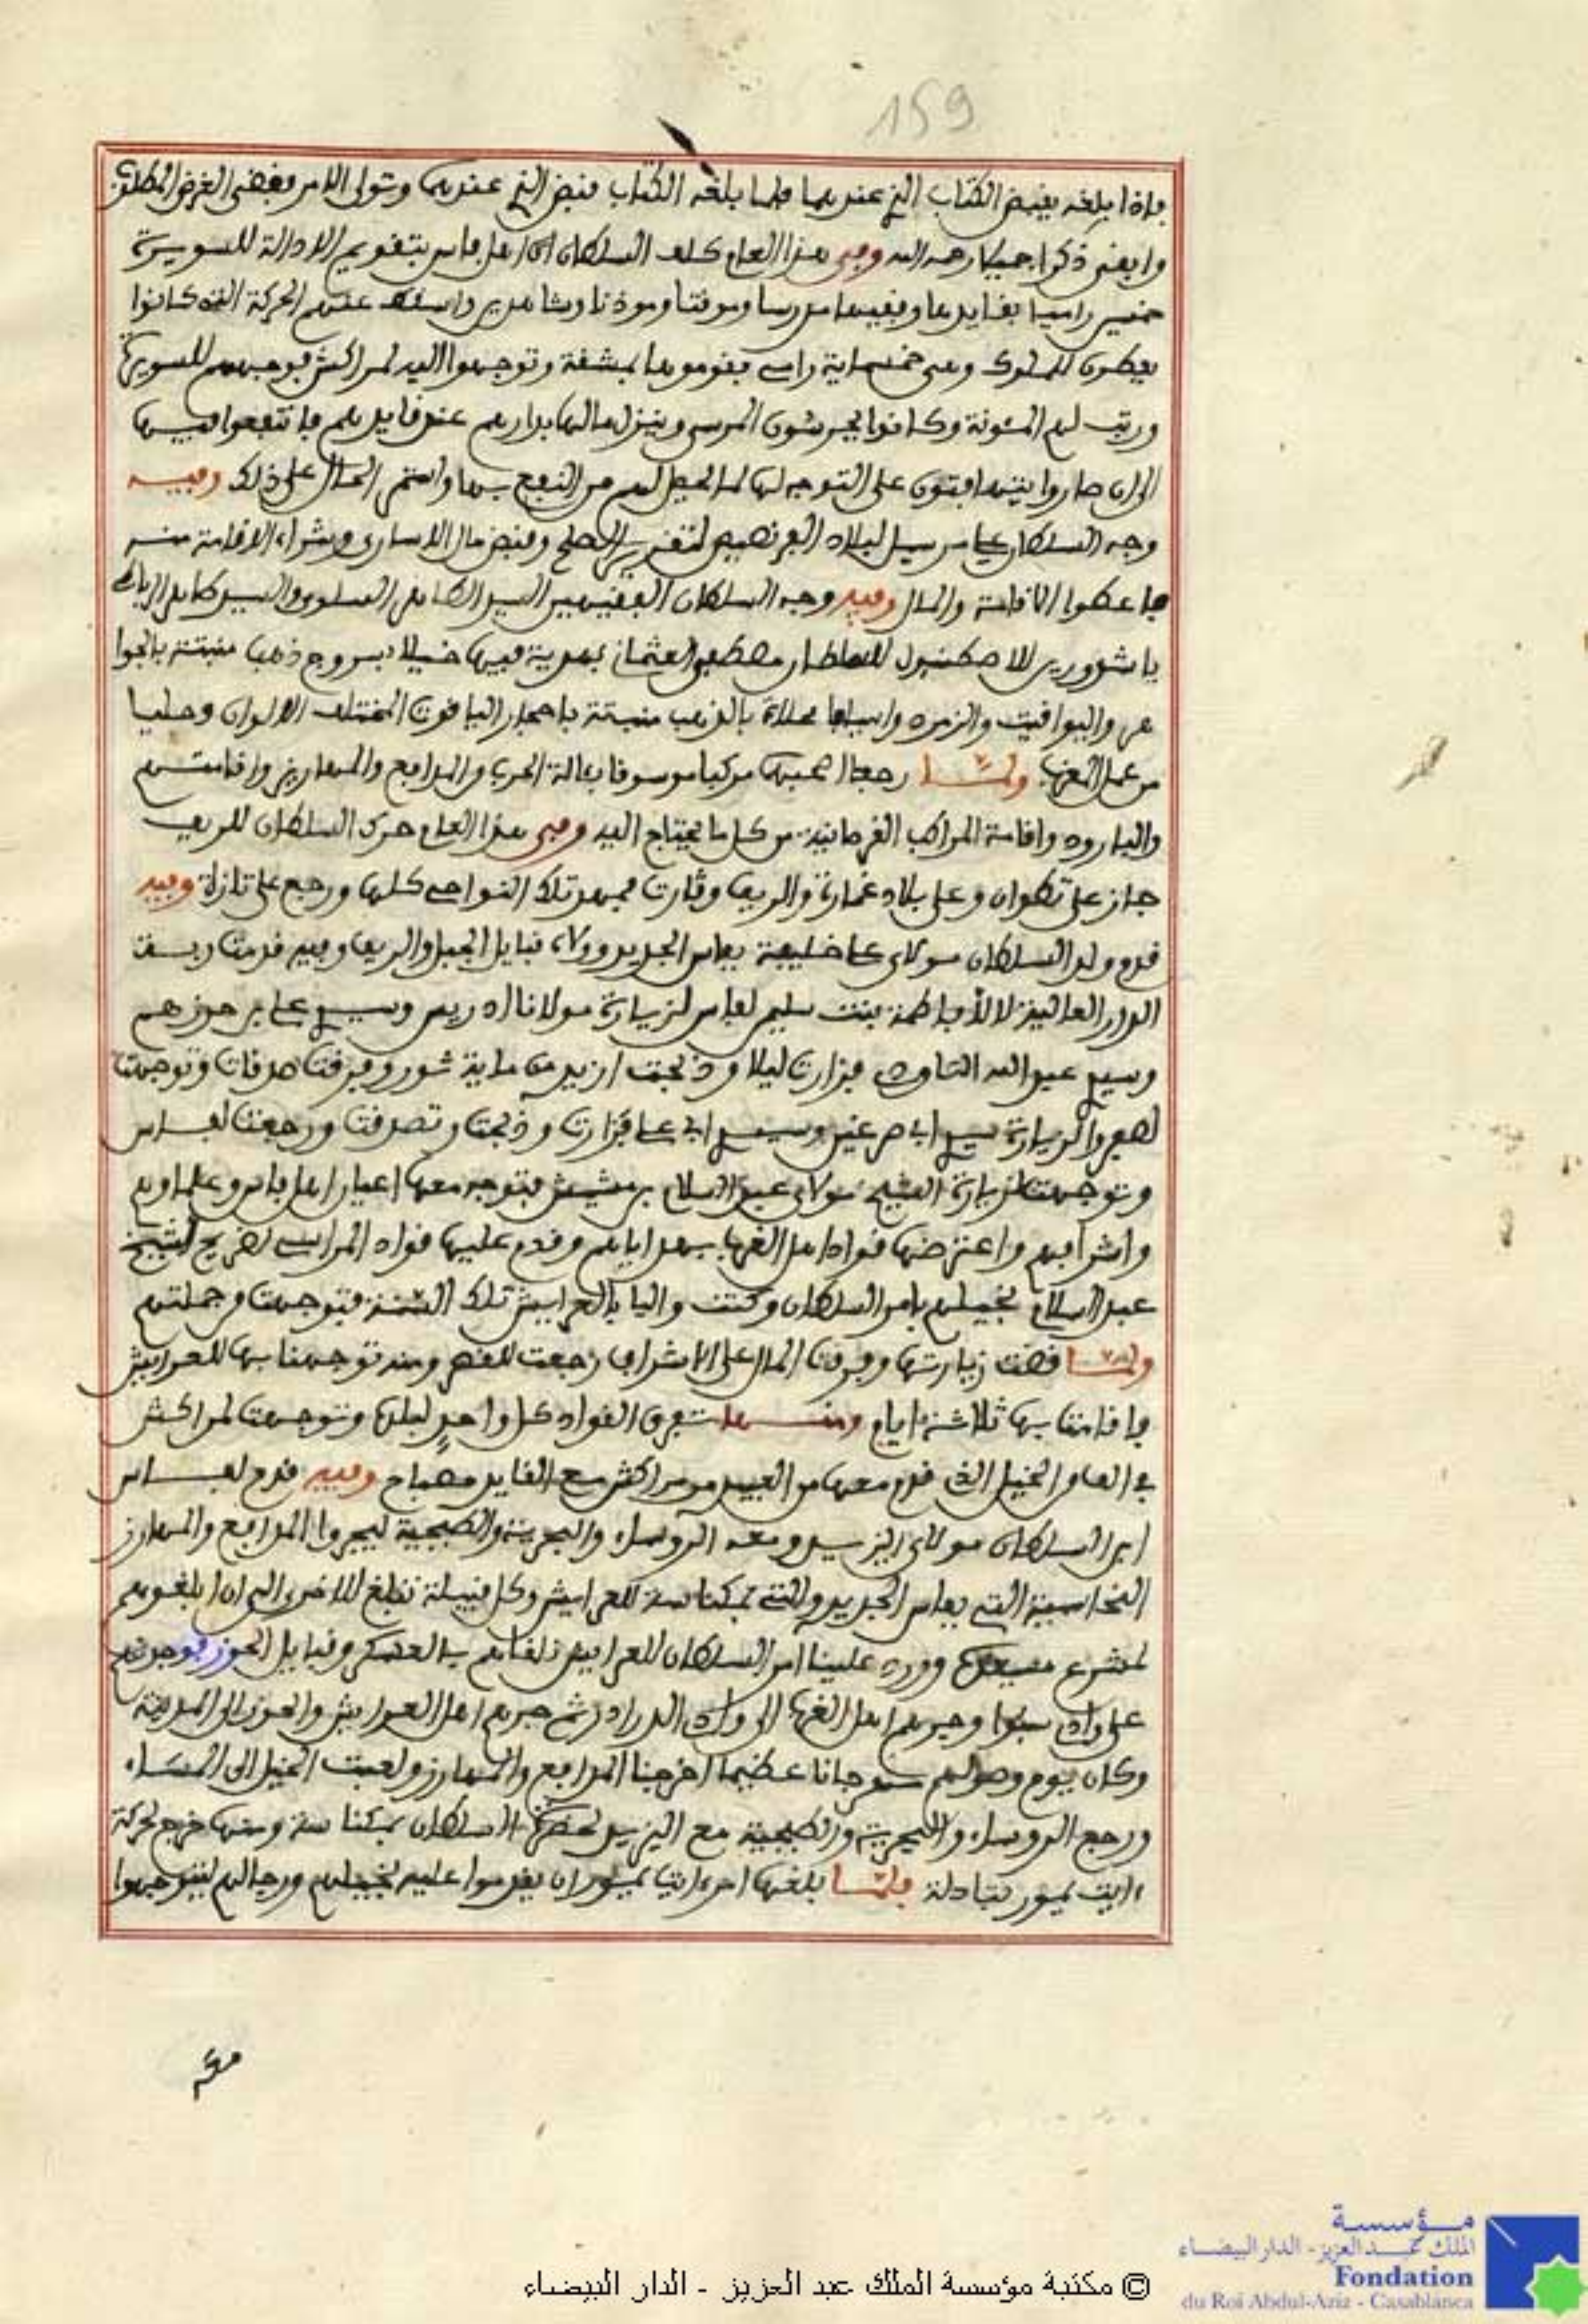 159
فإذا بلغه يقبض الكتاب الذي عندهما فلما بلغه الكتاب قبض الذي عندهما وتولى الامر وقضى الغرض المطلوب
وابقى ذكرا جميلا رحمه الله وفي هذا العام كلف السلطان اهل فاس بتقويم الادالة للسويرة
خمسين راميا بقايدها وفقيها مدرسا وموقتا وموذنا وشاهدين واسقط عنهم الحركة التي كانوا
يعطون للملوك وهي خمسماية رامي فقوموها بمشقة وتوجهوا اليه لمراكش فوجههم للسويرة
ورتب لهم المئونة وكانوا يحرسون المرسى وينزل مالها بدارهم عند قايدهم فانتفعوا فيها
الى ان صاروا يتهافتون على التوجه لها لما يحصل لهم من النفع بها واستمر الحال على ذلك وفيه
وجه السلطان علي مرسيل لبلاد الفرنصيص لتقرير الصلح وقبض مال الاسارى وشراء الاقامة منه
فاعطوا الاقامة والمال وفيه وجه السلطان الفقيهين السيد الطاهر السلوي والسيد الطاهر الرباطي
باشدورين للاصطنبول للسلطان مصطفى العثماني بهدية فيها خيلا بسروج ذهب منبتة بالجوا
هر واليواقيت والزمرد واسيافا محلاة بالذهب منبتة باحجار الياقوت المختلف الالوان وحليا
من عمل المغرب ولما رجعا اصحبهما مركبا موسوقا بـالة الحرب والمدافع والمهاريز واقامتهم
والبارود واقامة المراكب القرصانية من كل ما يحتاج اليه وفي هذا العام حرك السلطان للريف
جاز على تطوان وعلى بلاد غمارة والريف وݣارت فمهد تلك النواحي كلها ورجع على تازة وفيه
قدم ولد السلطان مولاي علي خليفة بفاس الجديد وولاه قبايل الجبل والريف وفيه قدمت ربة
الدار العالية لالا فاطمة بنت سليمن لفاس لزيارة مولانا ادريس وسيدي علي بن حرزهم
وسيدي عبد الله التاودي فزارت ليلا وذبحت ازيد من ماية ثور وفرقت صدقات وتوجهت
لصفرو لزيارة سيدي ابي سرغين وسيدي ابي علي فزارت وذبحت وتصدقت ورجعت لفاس
وتوجهت لزيارة الشيخ مولاي عبد السلام بن مشيش فتوجه معها اعيان اهل فاس وعلماوهم
واشرافهم واعترضها قواد اهل الغرب بهداياهم وقدم عليها قواد المراسي لضريح الشيخ
عبد السلام بخيلهم بامر السلطان وكنت واليا بالعرايش تلك السنة فتوجهت في جملتهم
ولما قضت زيارتها وفرقت المال على الاشراف رجعت للقصر ومنه توجهنا بها للعرايش
فاقامت بها ثلاثة ايام ومنها تفرق القواد كل واحد لبلده وتوجهت لمراكش
في العام الخيل الذي قدم معها من العبيد من مراكش مع القايد مصباح وفيه قدم لفاس
ابن السلطان مولاي اليزيد ومعه الروساء والبحرية والطبجية ليجروا المدافع والمهارز
النحاسية التي بفاس الجديد والتي بمكناسة للعرايش وكل قبيلة تبلغ للاخرى الى ان ابلغوهم
لمشرع مسيعيدة وورد علينا امر السلطان للعرايش نلقاهم بالعسكر وقبايل الحوز فوجدناهم
على وادي سبوا وجرهم اهل الغرب الى وادي الدرادر ثم جرهم اهل العرايش والحوز الى المدينة
وكان يوم وصولهم مهرجانا عظيما اخرجنا المدافع والمهارز ولعبت الخيل الى المساء
ورجع الروساء والبحرية والطبجية مع اليزيد لحضرة السلطان بمكناسة ومنها خرج لحركة
ايت يمور بتادلة فلما بلغها امر ايت يمور ان يقدموا عليه بخيلهم ورجالهم ليتوجهوا
معه
مؤسسة
الملك عبد العزيز - الدار البيضاء
Fondation
du Roi Abdul-Aziz - Casablanca
© مكتبة مؤسسة الملك عبد العزيز - الدار البيضاء